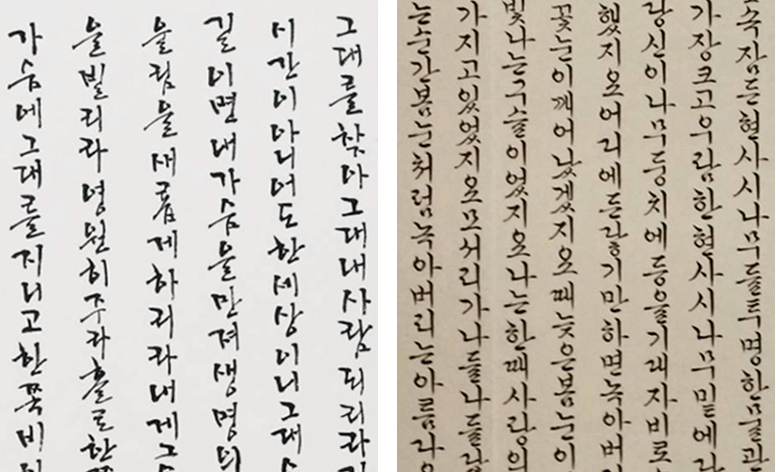 그대를찾아그대내사람되리라
시간이아니어도한세상이니그대
길이면내가슴을만져생명의
울림을새롭게하리라내게그
을빌리라영원히주라홀로한
가슴에그대를지니고한쪽비
속잠든현사시나무들투명한물관
가장크고우람한현사시나무밑에
당신이나무둥치에등을기대자비로
했지요어디에든닿기만하면녹아버
꽃눈이깨어났겠지요때늦은봄눈이
빛나는구슬이었지요나는한때사랑의
가지고있었지요모서리가나들나들
는순간봄눈처럼녹아버리는아름다